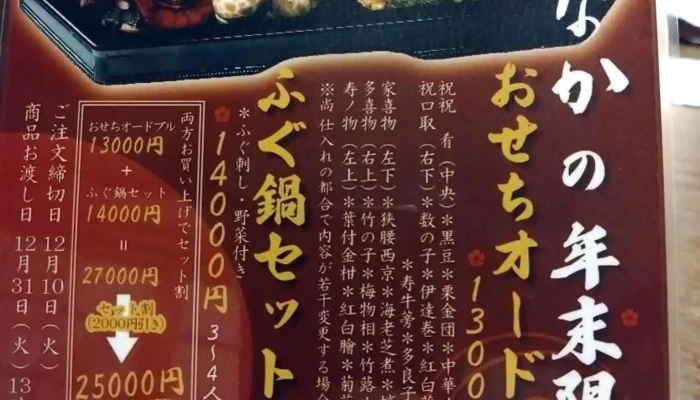 なかの年末限
おせちオード
1300
祝祝 肴（中央）＊黒豆＊栗金団＊中華
祝口取（右下）＊数の子＊伊達巻＊紅白
＊寿牛蒡＊多良子
家喜物（左下）＊狭腰西京＊海老芝煮
多喜物（右上）＊竹の子＊梅物相＊竹蕗
寿ノ物（左上）＊葉付金柑＊紅白膾＊菊
※尚仕入れの都合で内容が若干変更する場合
ふぐ鍋セット
＊ふぐ刺し・野菜付き
14000円 3～4人
両方お買い上げでセット割
おせちオードブル
13000円
+
ふぐ鍋セット
14000円
=
27000円
セット割
(2000円引き)
25000円
ご注文締切日 12月10日（火）
商品お渡し日 12月31日（火）13